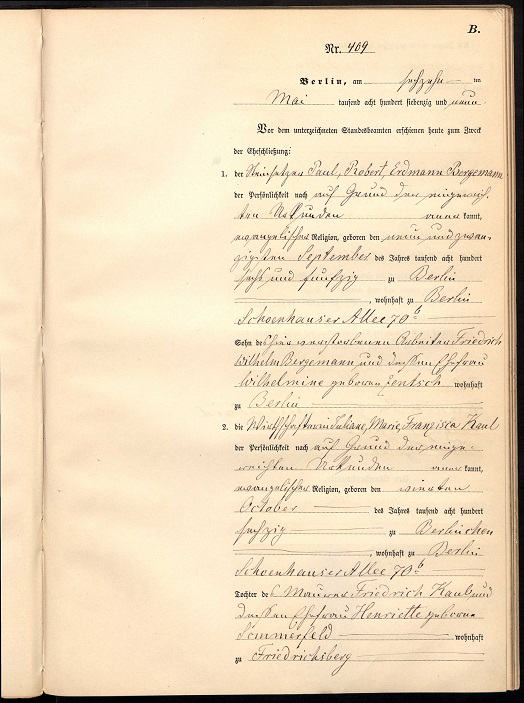 B.
Nr. 409
Berlin, am sechzehn ten
Mai tausend acht hundert siebenzig und neun.
Vor dem unterzeichneten Standesbeamten erschienen heute zum Zweck
der Eheschließung:
1. der Steinsetzer Paul, Robert, Erdmann Bergemann
der Persönlichkeit nach auf Grund der eingereich-
ten Urkunden anerkannt,
evangelischer Religion, geboren den neun und zwan-
zigsten September des Jahres tausend acht hundert
sechs und fünfzig zu Berlin
, wohnhaft zu Berlin
Schoenhauser Allee 70b
Sohn des hier verstorbenen Arbeiter Friedrich
Wilhelm Bergemann und dessen Ehefrau
Wilhelmine geboren Jentsch wohnhaft
zu Berlin
2. die Wirthschafterin Juliane, Marie, Franziska Kaul
der Persönlichkeit nach auf Grund der einge-
reichten Urkunden anerkannt,
evangelischer Religion, geboren den vierten
October des Jahres tausend acht hundert
sechzig zu Berlinchen
, wohnhaft zu Berlin
Schoenhauser Allee 70b
Tochter des Maurer Friedrich Kaul und
dessen Ehefrau Henriette geboren
Sommerfeld wohnhaft
zu Friedrichsberg